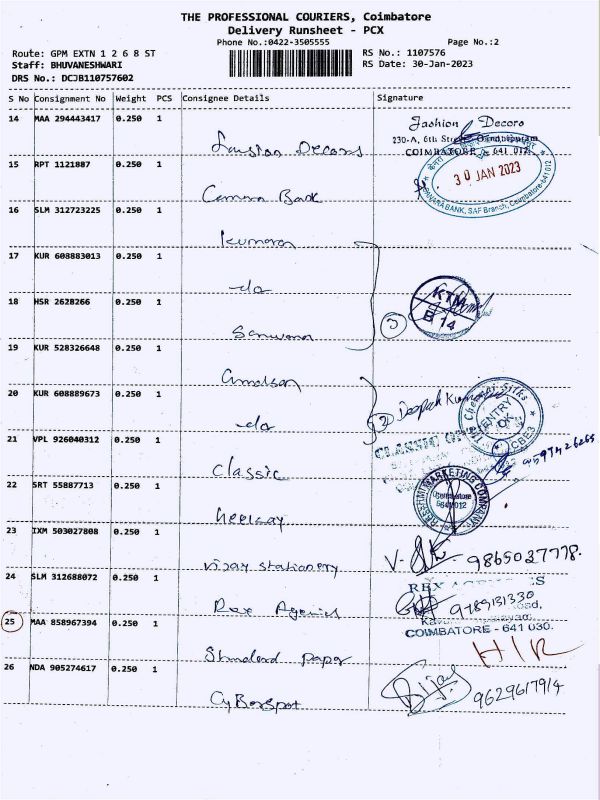 THE PROFESSIONAL COURIERS, Coimbatore
Delivery Runsheet - PCX
Phone No.:0422-3505555 Page No.:2
Route: GPM EXTN 1 2 6 8 ST RS No.: 1107576
Staff: BHUVANESHWARI RS Date: 30-Jan-2023
DRS No.: DCJB110757602
S No Consignment No Weight PCS Consignee Details Signature
14 MAA 294443417 0.250 1
Fashion Decors
230-A, 6th Street, Gandhipuram
COIMBATORE - 641 012
15 RPT 1121887 0.250 1
Canara Bank
30 JAN 2023
CANARA BANK, SAF Branch, Coimbatore-641 012
16 SLM 312723225 0.250 1
Kumaran
17 KUR 608883013 0.250 1
-do-
18 HSR 2628266 0.250 1
3
KTM
14
19 KUR 528326648 0.250 1
20 KUR 608889673 0.250 1
-do-
2 Deepak Kumar
The Chennai Silks
ENTRY OK
CBE3
21 VPL 926040312 0.250 1
Classic
CLASSIC
22 SRT 55887713 0.250 1
MARKETING COMPANY
Coimbatore
641 012
23 IXM 503027808 0.250 1
Vijay Stationery
9865027778.
24 SLM 312688072 0.250 1
Rex Agencies
9789131330
COIMBATORE - 641 030.
25 MAA 858967394 0.250 1
Standard paper
26 NDA 905274617 0.250 1
CyBerspot
Vijay
9629617914